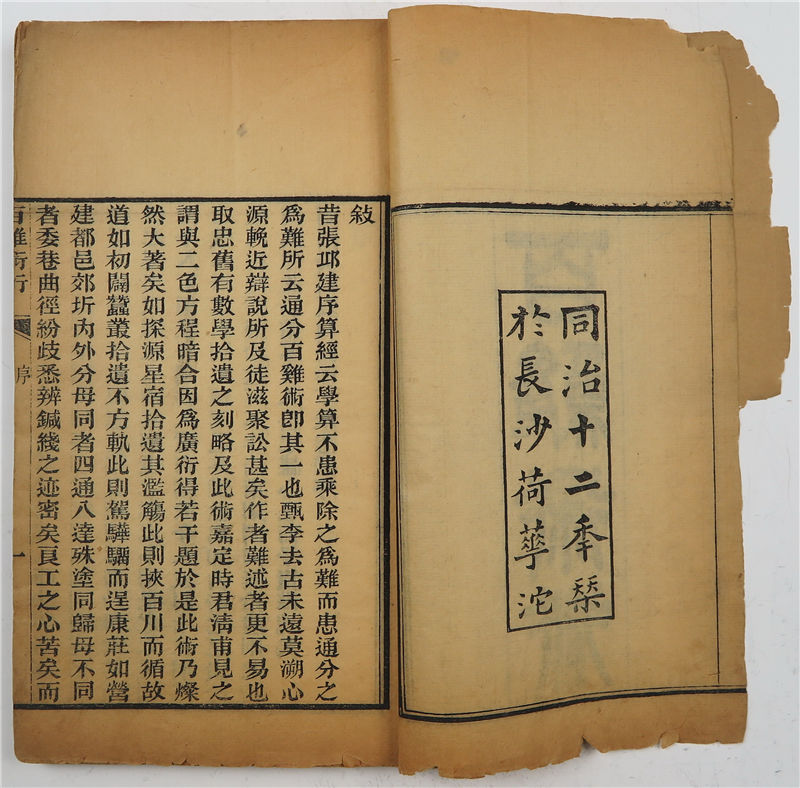 同治十二秊琹
於長沙荷華沱
敍
昔張邱建序算經云學算不患乘除之為難而患通分之
為難所云通分百雞術卽其一也甄李去古未遠莫溯心
源輓近辯說所及徒滋聚訟甚矣作者難述者更不易也
取忠舊有數學拾遺之刻略及此術嘉定時君淸甫見之
謂與二色方程暗合因為廣衍得若干題於是此術乃燦
然大著矣如探源星宿拾遺其濫觴此則挾百川而循故
道如初闢蠶叢拾遺不方軌此則駕驊騮而逞康莊如營
建都邑郊圻內外分母同者四通八達殊塗同歸母不同
者委巷曲徑紛歧悉辨鍼綫之迹密矣良工之心苦矣而
百雞術衍
序
一